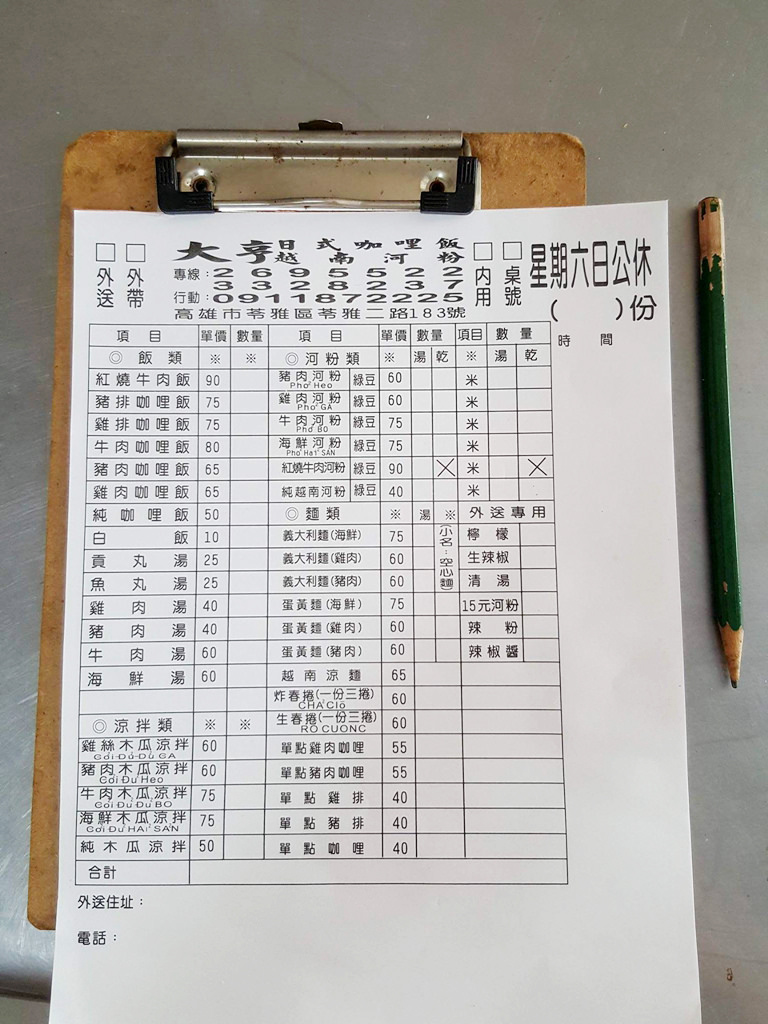 外送 外帶 大亨 日式咖哩飯 越南河粉 內用 桌號 星期六日公休
專線：2695522
3328237
行動：0911872225
高雄市苓雅區苓雅二路183號
( )份
時間
項目 單價 數量 項目 單價 數量 項目 數量
◎飯類 ※ ※ ◎河粉類 ※ 湯 乾 ※ 湯 乾
紅燒牛肉飯 90 豬肉河粉 Pho Heo 綠豆 60 米
豬排咖哩飯 75 雞肉河粉 Pho GÀ 綠豆 60 米
雞排咖哩飯 75 牛肉河粉 Pho BO 綠豆 75 米
牛肉咖哩飯 80 海鮮河粉 Pho Hai SAN 綠豆 75 米
豬肉咖哩飯 65 紅燒牛肉河粉 綠豆 90 米
雞肉咖哩飯 65 純越南河粉 綠豆 40 米
純咖哩飯 50 ◎麵類 ※ 湯 ※ 外送專用
白飯 10 義大利麵(海鮮) 75 (小名：空心麵) 檸檬
貢丸湯 25 義大利麵(雞肉) 60 生辣椒
魚丸湯 25 義大利麵(豬肉) 60 清湯
雞肉湯 40 蛋黃麵(海鮮) 75 15元河粉
豬肉湯 40 蛋黃麵(雞肉) 60 辣粉
牛肉湯 60 蛋黃麵(豬肉) 60 辣椒醬
海鮮湯 60 越南涼麵 65
炸春捲(一份三捲) CHẢ Giò 60
◎涼拌類 ※ ※ 生春捲(一份三捲) RÔ CUONC 60
雞絲木瓜涼拌 Gơi Đu Đu GA 60 單點雞肉咖哩 55
豬肉木瓜涼拌 Gơi Đu Heo 60 單點豬肉咖哩 55
牛肉木瓜涼拌 Gơi Đu Đu BO 75 單點雞排 40
海鮮木瓜涼拌 Gơi Đu HAi SAN 75 單點豬排 40
純木瓜涼拌 50 單點咖哩 40
合計
外送住址：
電話：